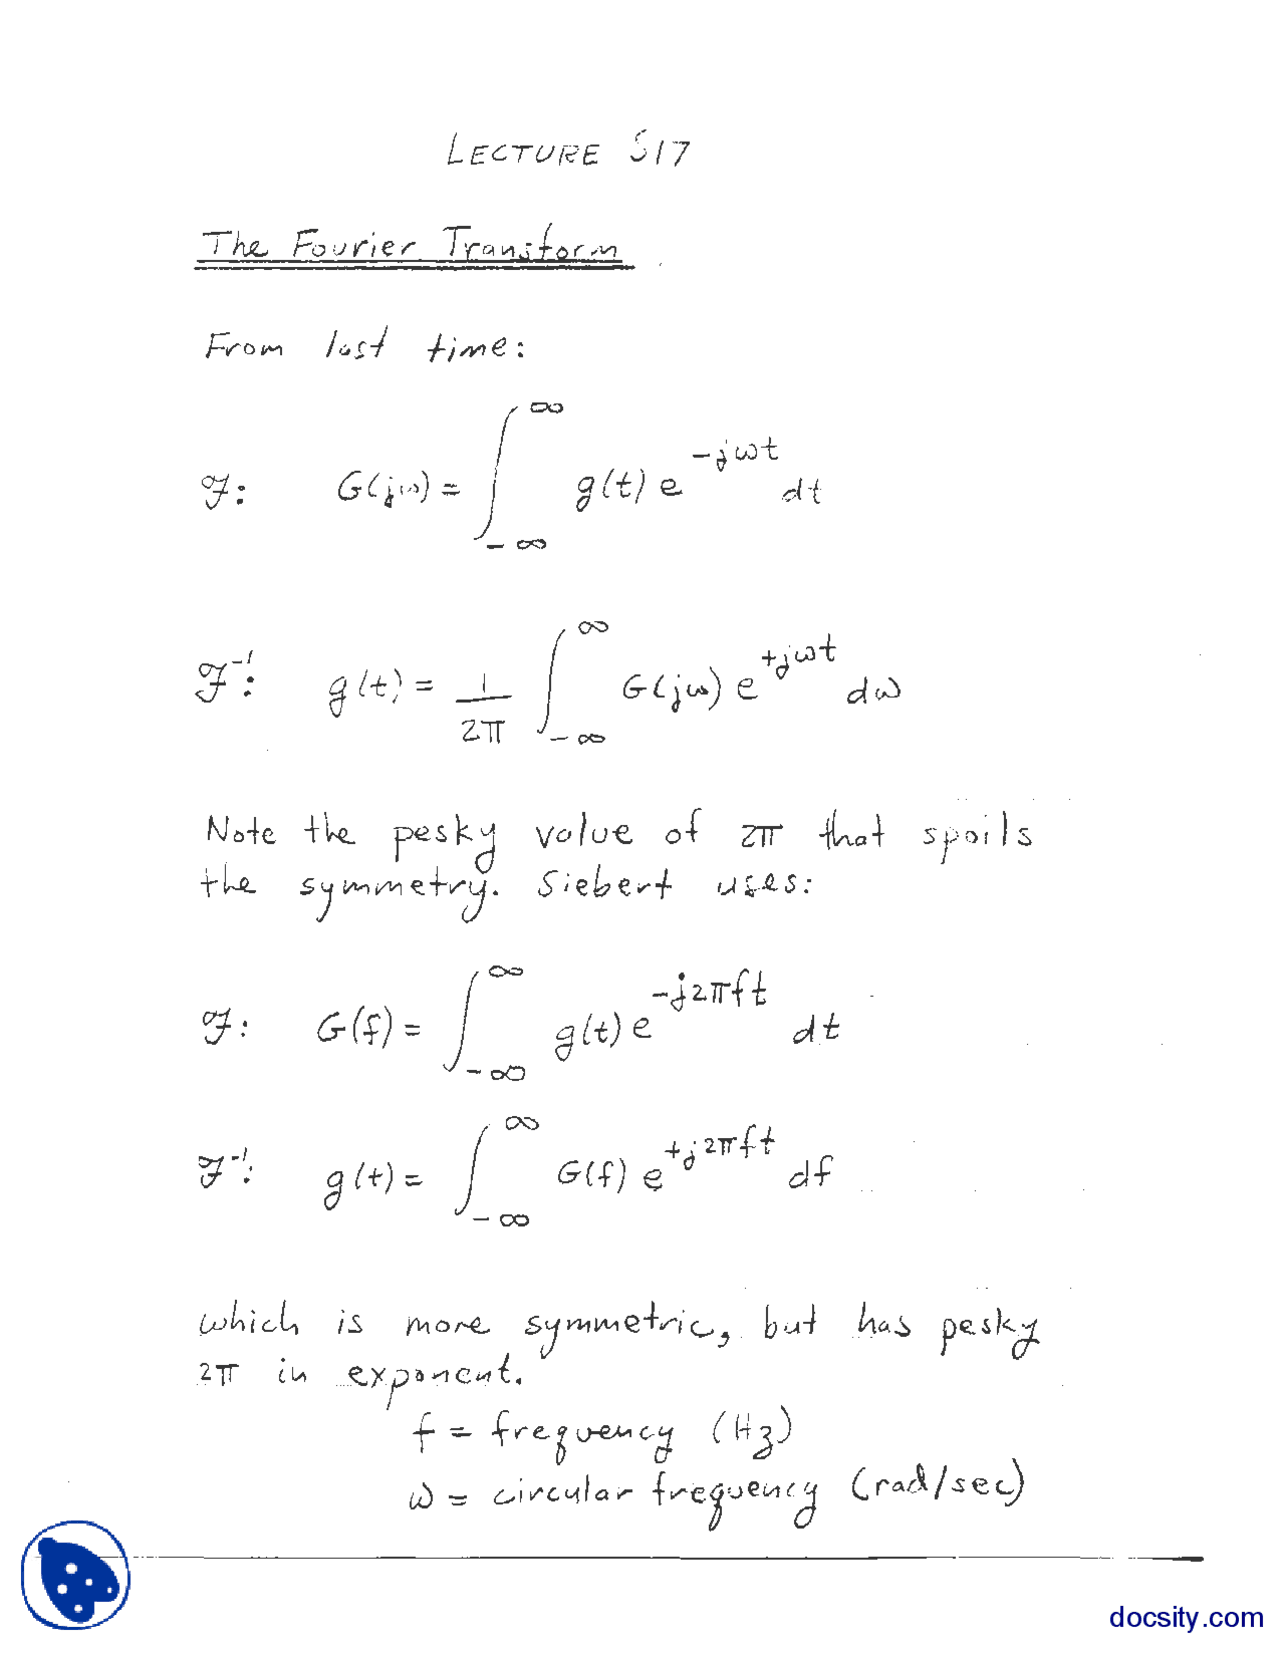 LECTURE S17
The Fourier Transform
From last time:
ℱ: G(jω) = ∫_{-∞}^{∞} g(t) e^{-jωt} dt
ℱ^{-1}: g(t) = \frac{1}{2π} ∫_{-∞}^{∞} G(jω) e^{+jωt} dω
Note the pesky value of 2π that spoils
the symmetry. Siebert uses:
ℱ: G(f) = ∫_{-∞}^{∞} g(t) e^{-j2πft} dt
ℱ^{-1}: g(t) = ∫_{-∞}^{∞} G(f) e^{+j2πft} df
which is more symmetric, but has pesky
2π in exponent.
f = frequency (Hz)
ω = circular frequency (rad/sec)
docsity.com